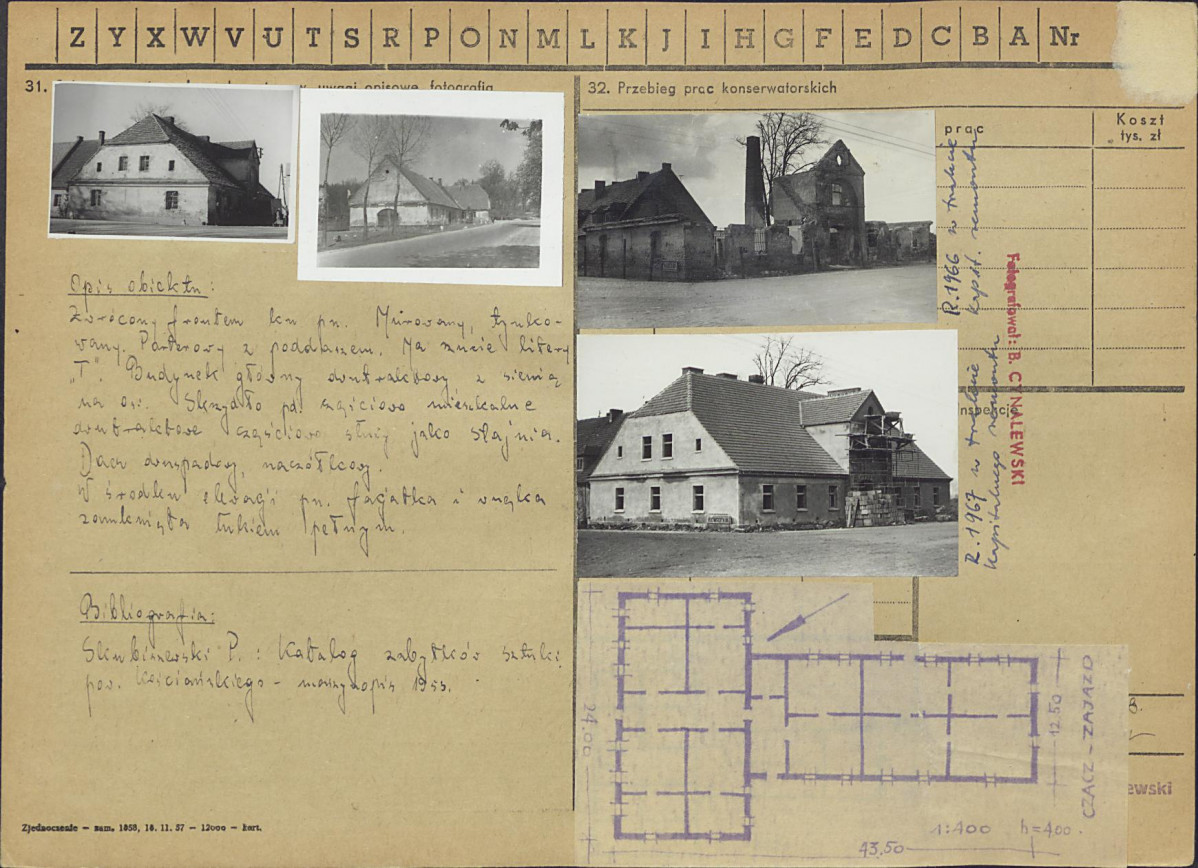 Z Y X W V U T S R P O N M L K J I H G F E D C B A Nr
31. uwagi opisowe, fotografia
Opis obiektu:
Zwrócony frontem ku pn. Murowany, tynko-
wany. Parterowy z poddaszem. Na rzucie litery
„T". Budynek główny dwutraktowy, z sienią
na osi. Skrzydło pd. częściowo mieszkalne
dwutraktowe częściowo służy jako stajnia.
Dach dwuspadowy, naczółkowy.
W środku elewacji pn. facjatka i wnęka
zamknięta łukiem pełnym.
Bibliografia:
Skubiszewski P.: Katalog zabytków sztuki
pow. Kościańskiego - maszynopis 1953.
Zjednoczenie — zam. 1058, 10. 11. 57 — 12000 — kart.
32. Przebieg prac konserwatorskich
prac
Koszt
tys. zł
R. 1966 w trakcie
kapit. remontu
Fotografował: B. CYNALEWSKI
R. 1967 w trakcie
kapitalnego remontu
nspekcja
24.00
12.50
CZACZ - ZAJAZD
1:400 h=4.00.
43.50
ewski